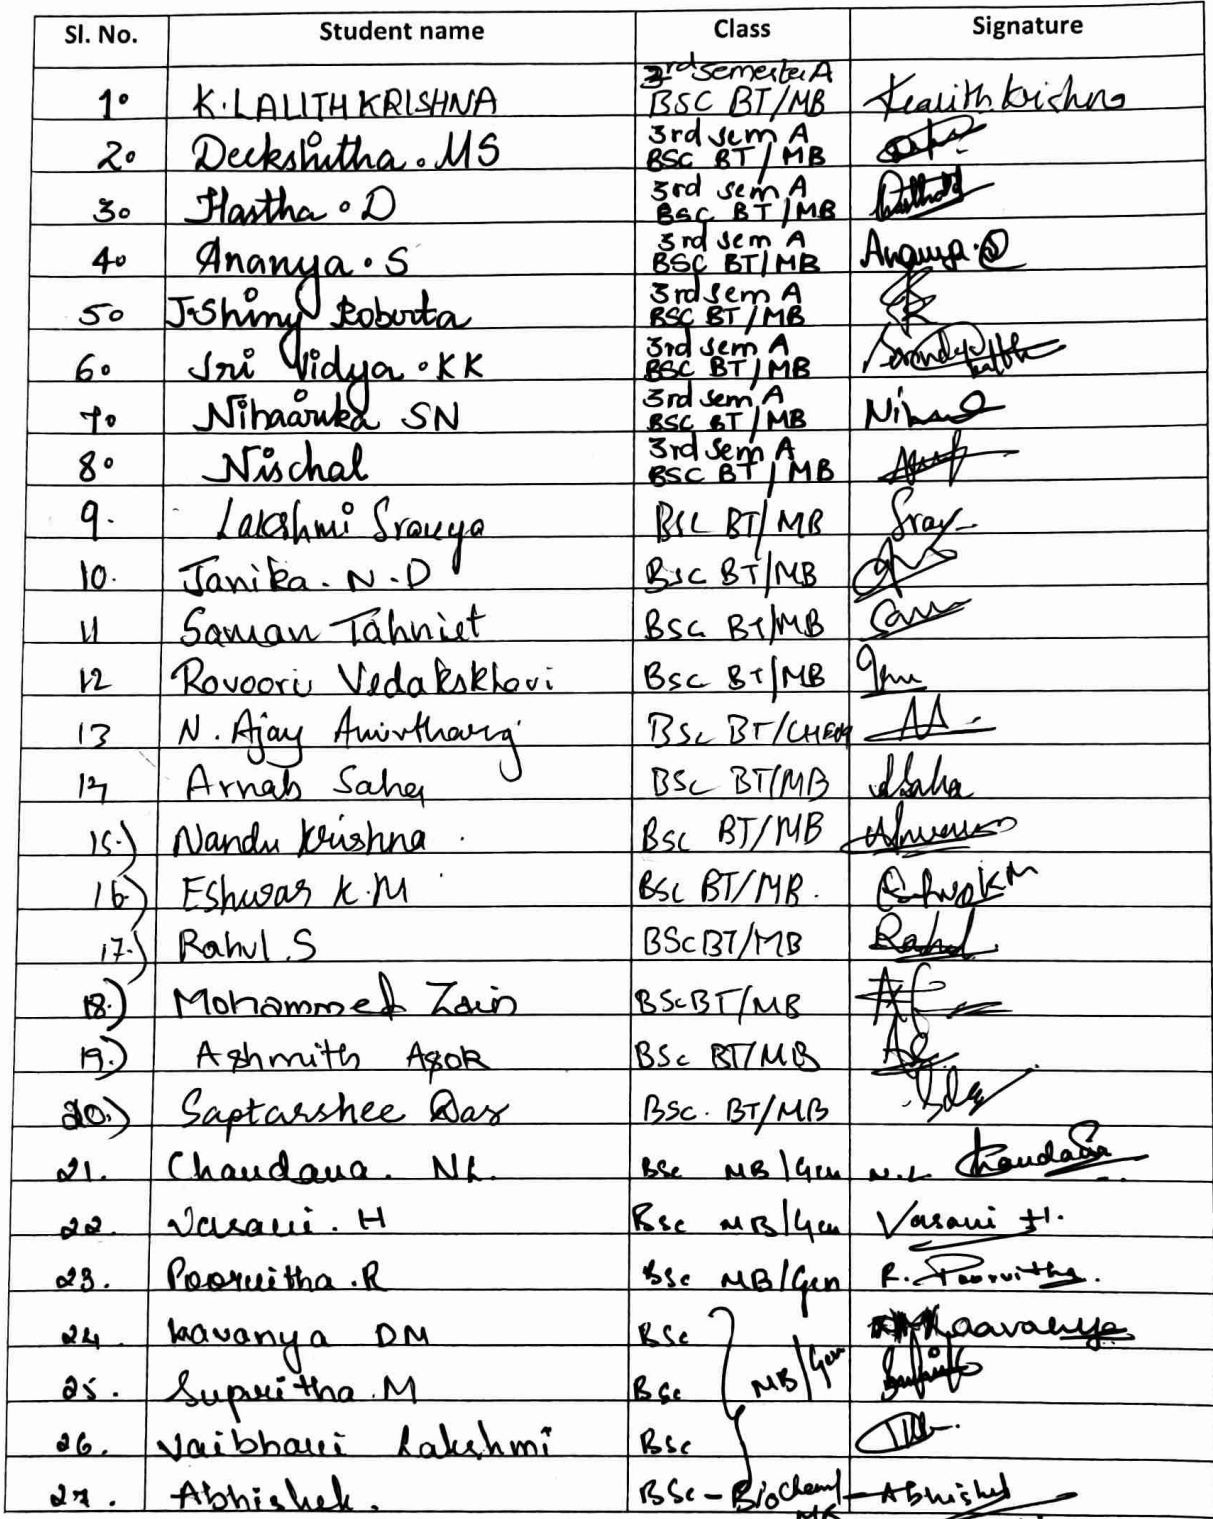 Sl. No. Student name Class Signature
1. K. LALITH KRISHNA 3rd semester A
BSC BT/MB Klalith krishna
2. Deekshitha. MS 3rd sem A
BSC BT/MB
3. Hastha. D 3rd sem A
BSC BT/MB
4. Ananya. S 3rd sem A
BSC BT/MB Ananya. S
5. J. Shiny Roberta 3rd sem A
BSC BT/MB
6. Sri Vidya. KK 3rd sem A
BSC BT/MB
7. Nihaarika SN 3rd sem A
BSC BT/MB
8. Nischal 3rd sem A
BSC BT/MB
9. Lakshmi Sravya BSc BT/MB Srav
10. Janika. N. D BSc BT/MB
11 Saman Tahniet BSc BT/MB
12 Rovoori BSc BT/MB
13 N. Ajay Amirtharaj BSc BT/CHEM
14 Arnab Saha BSc BT/MB ASaha
15.) Nandu Krishna BSc BT/MB
16) Eshwar K. M BSc BT/MB.
17.) Rahul. S BSc BT/MB Rahul
18.) Mohammed Zain BSc BT/MB
19.) Ashmith Asok BSc BT/MB
20.) Saptarshee Das BSc. BT/MB
21. Chandana. NL. BSc MB/Gen N.L Chandana
22. Vasavi. H BSc MB/Gen Vasavi H.
23. Poorvitha. R BSc MB/Gen R. Poorvitha.
24. Kavanya DM BSc Kaavanya
25. Supritha. M BSc MB/Gen
26. Vaibhavi Lakshmi BSc
27. Abhishek. BSc - Biochem/ Abhishek
MB